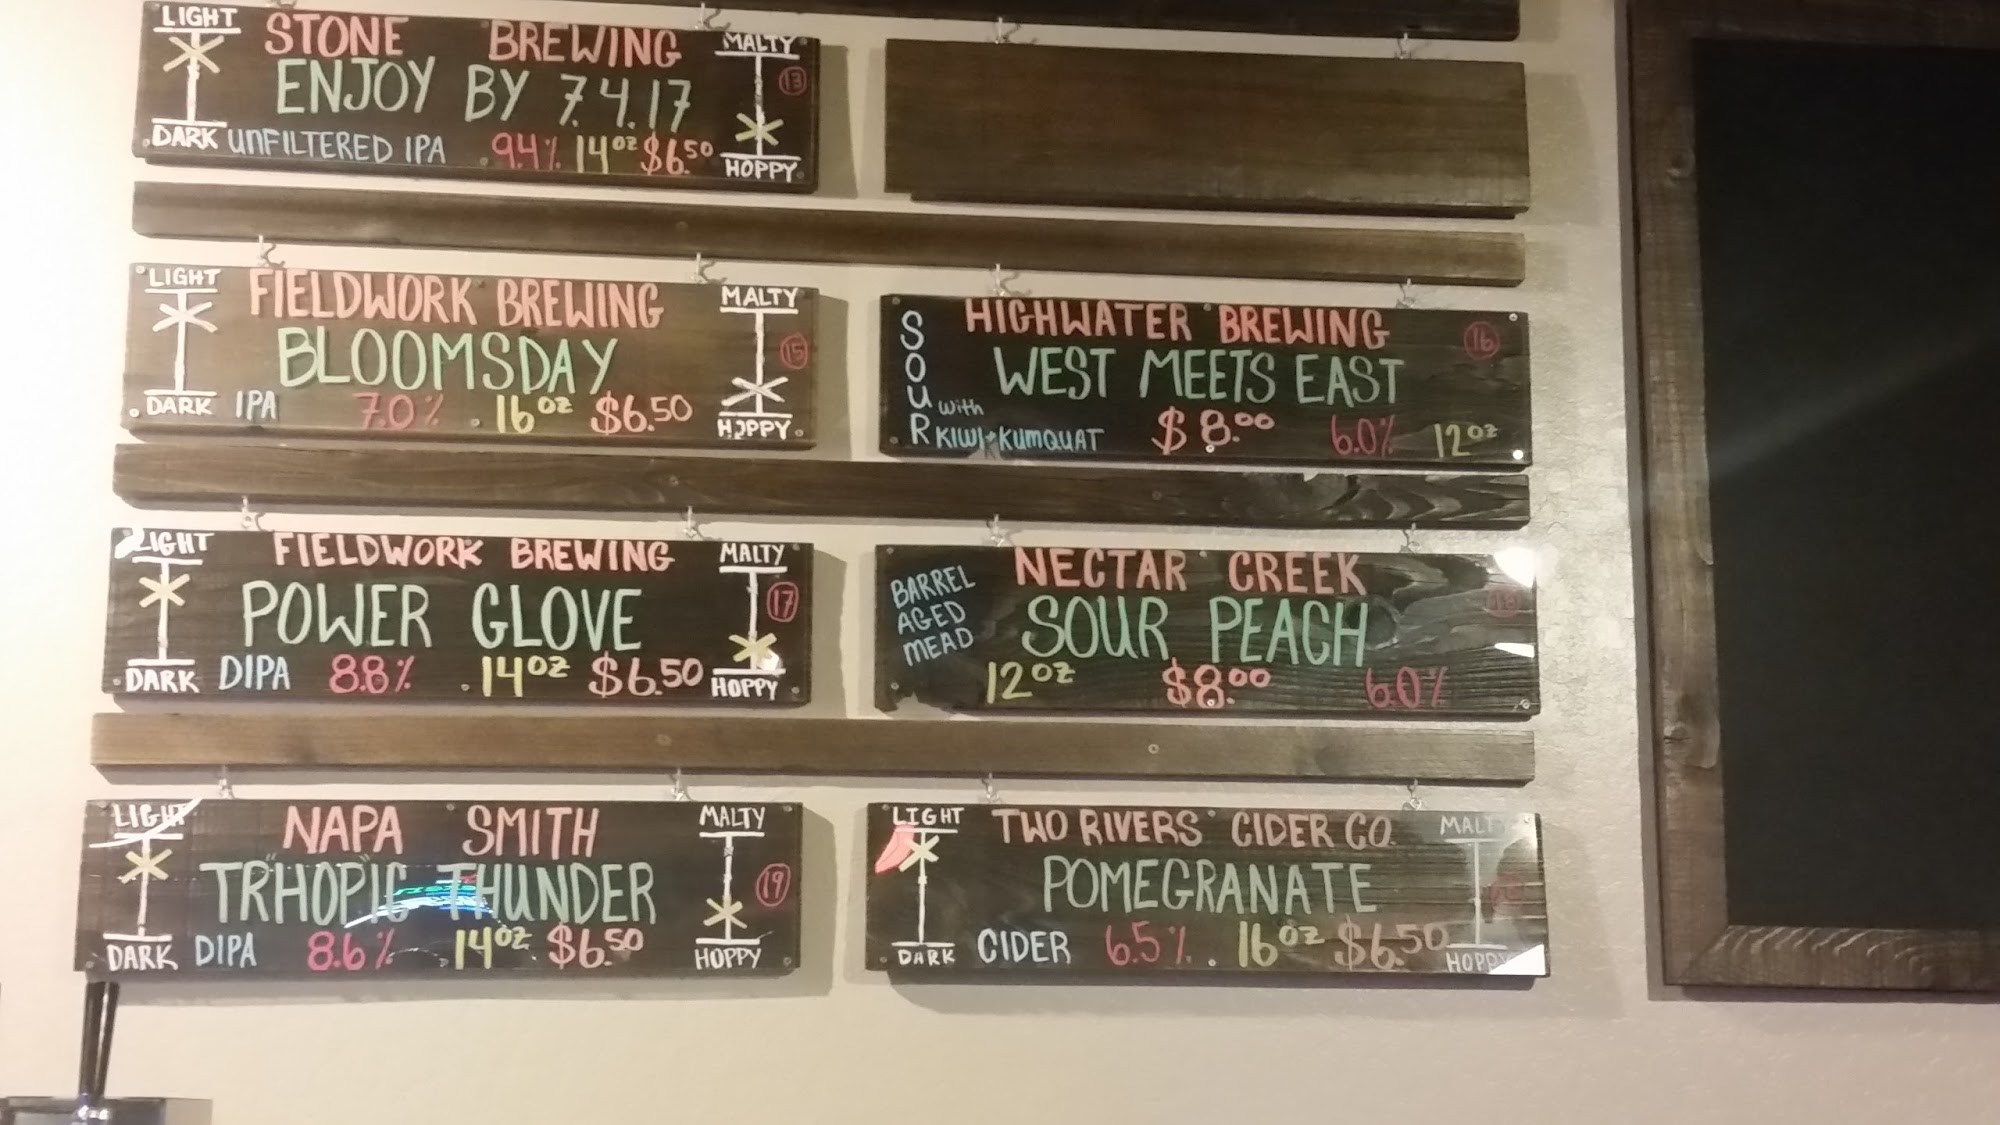 LIGHT STONE BREWING MALTY
ENJOY BY 7.4.17 13
DARK UNFILTERED IPA 9.4% 14oz $6.50 HOPPY
LIGHT FIELDWORK BREWING MALTY
BLOOMSDAY 15
DARK IPA 7.0% 16oz $6.50 HOPPY
SOUR HIGHWATER BREWING 16
WEST MEETS EAST
with KIWI + KUMQUAT $8.00 6.0% 12oz
LIGHT FIELDWORK BREWING MALTY
POWER GLOVE 17
DARK DIPA 8.8% 14oz $6.50 HOPPY
BARREL AGED MEAD
NECTAR CREEK
SOUR PEACH 18
12oz $8.00 6.0%
LIGHT NAPA SMITH MALTY
"TRHOPIC" THUNDER 19
DARK DIPA 8.6% 14oz $6.50 HOPPY
LIGHT TWO RIVERS CIDER CO. MALTY
POMEGRANATE
DARK CIDER 6.5% 16oz $6.50 HOPPY